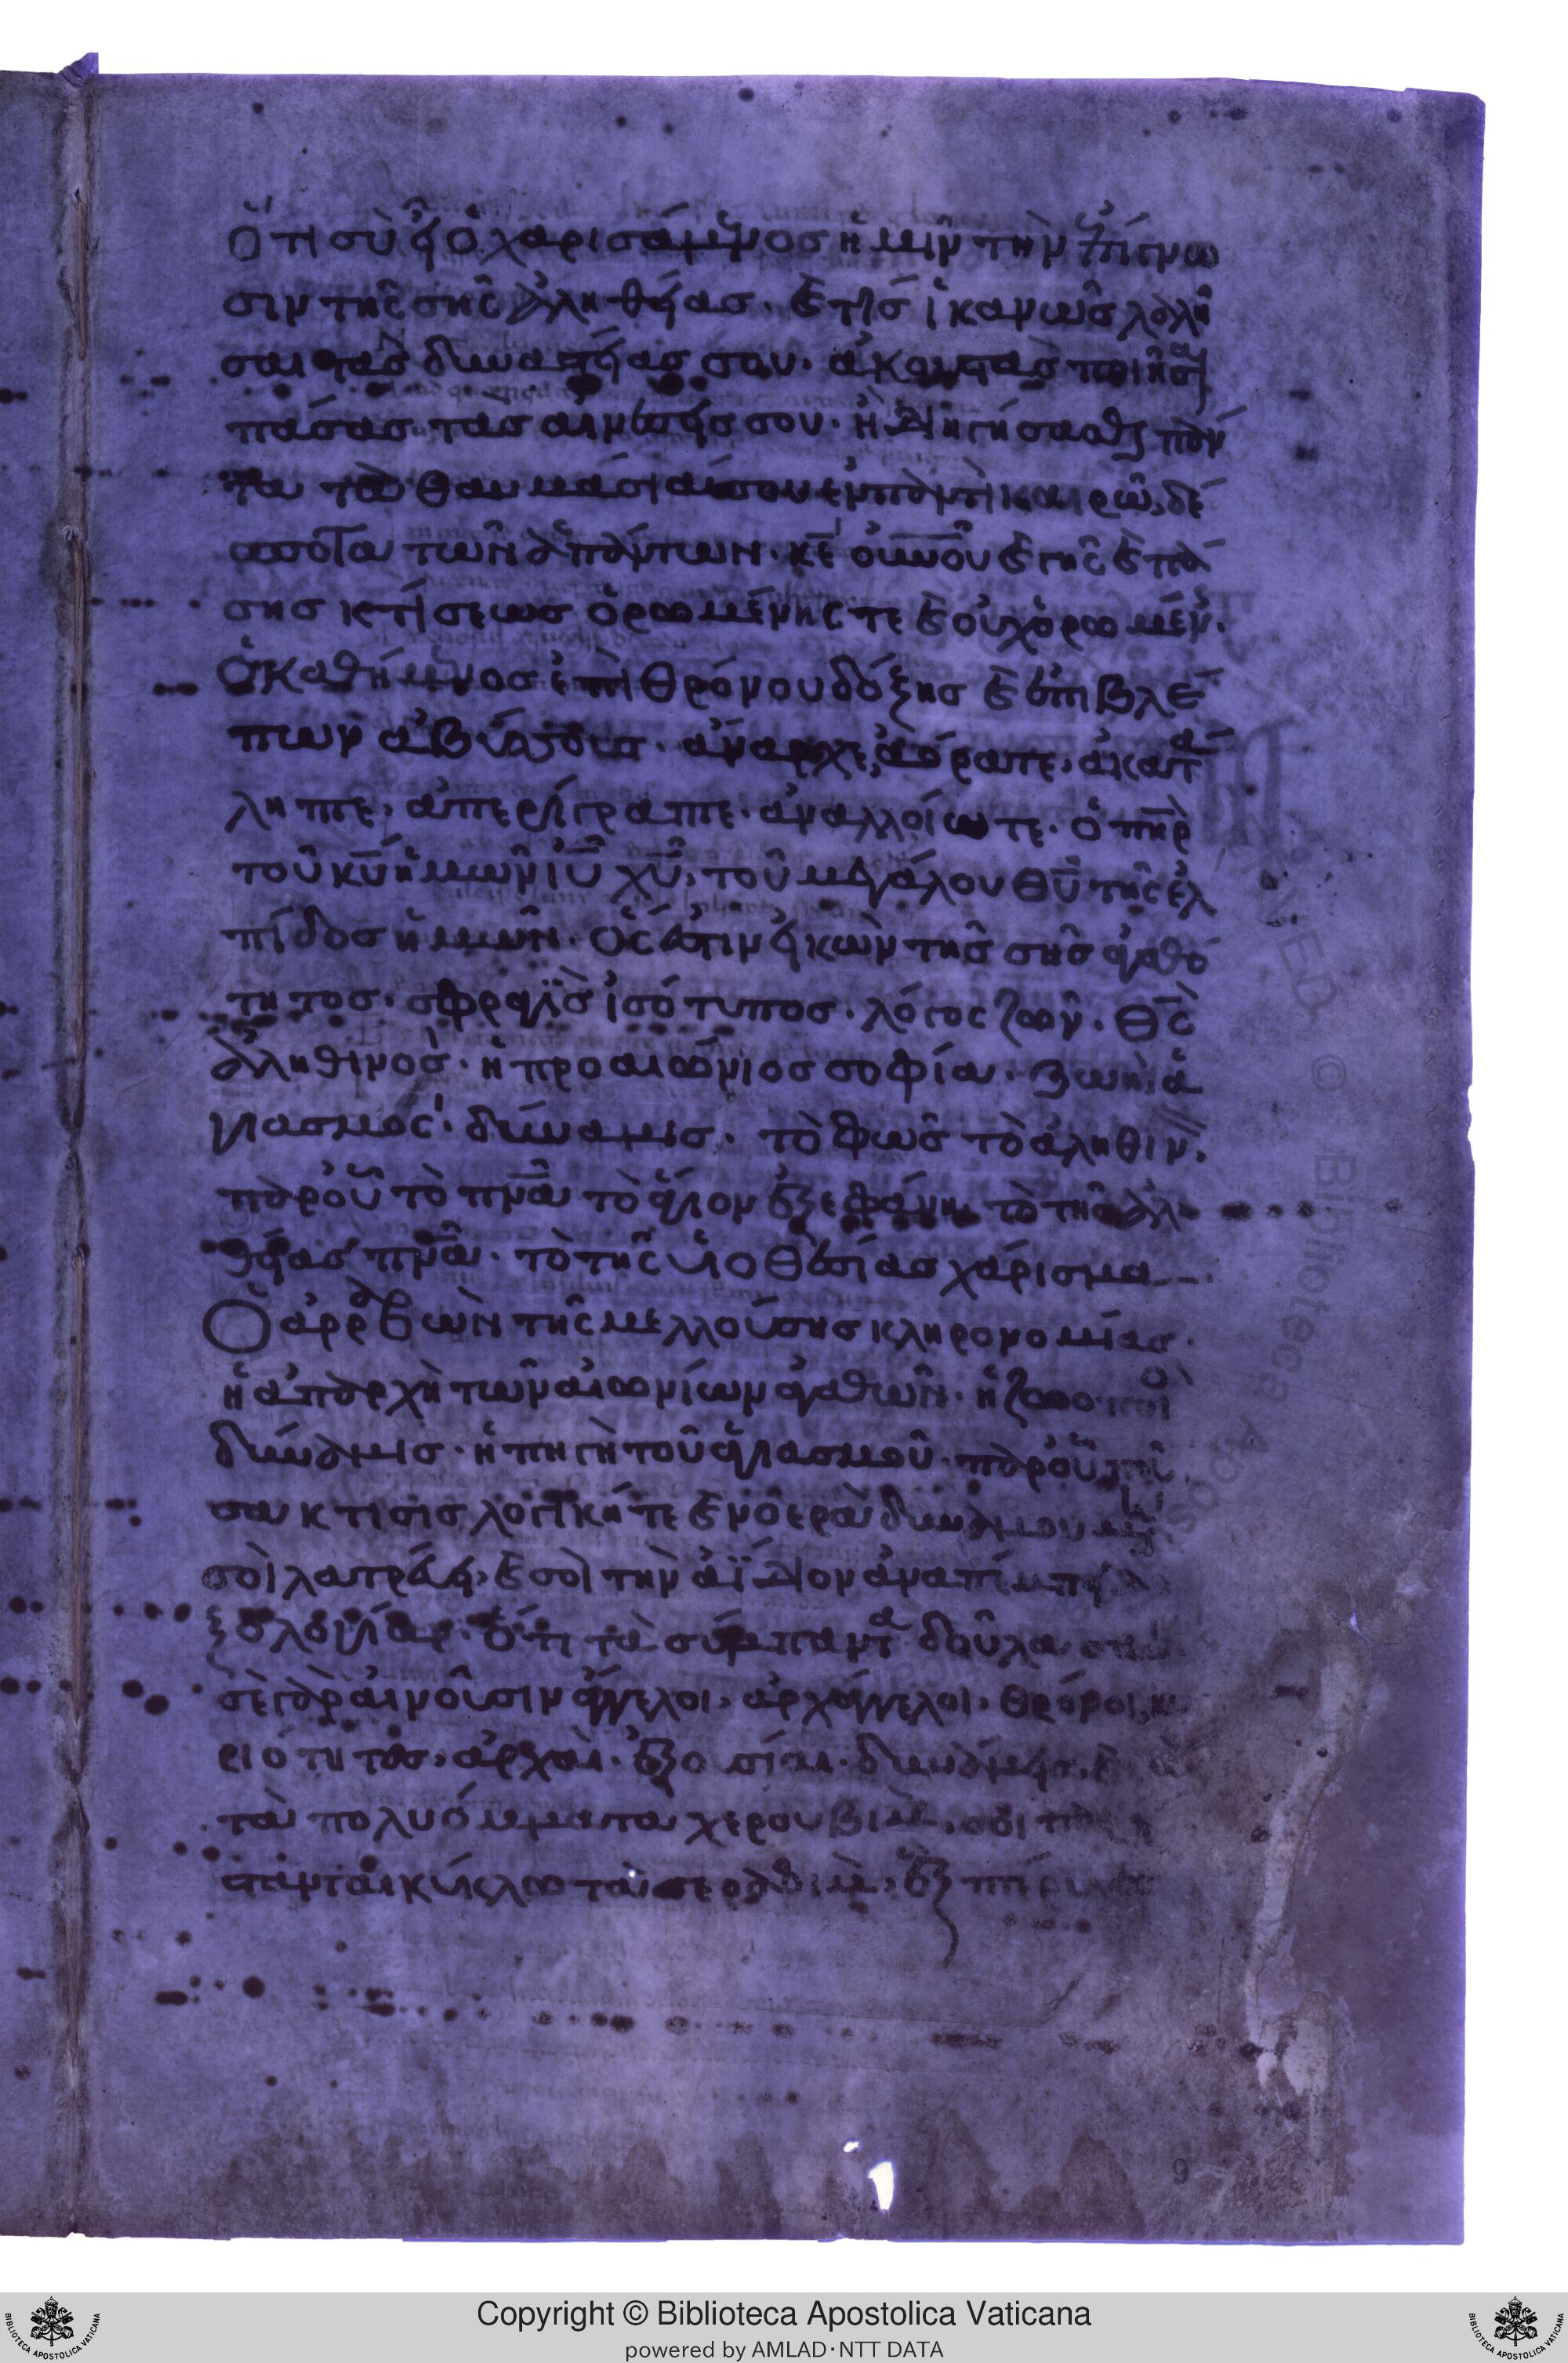 Ὅτι σὺ εἶ ὁ χαρισάμενος ἡμῖν τὴν ἐπίγνω
σιν τῆς σῆς ἀληθείας. καὶ τίς ἱκανὸς λαλῆ
σαι τὰς δυναστείας σου. ἀκουστὰς ποιῆσαι
πάσας τὰς αἰνέσεις σου. ἢ διηγήσασθαι πάν
τα τὰ θαυμάσιά σου ἐν παντὶ καιρῷ, δέ
σποτα τῶν ἁπάντων. κε̄ οὐνοῦ καὶ γῆς καὶ πά
σης κτίσεως ὁρωμένης τε καὶ οὐχ ὁρωμέν.
Ὁ καθήμενος ἐπὶ θρόνου δόξης καὶ ἐπιβλέ
πων ἀβύσσους. ἄναρχε, ἀόρατε, ἀκατά
ληπτε, ἀπερίγραπτε. ἀναλλοίωτε. ὁ πηρ
τοῦ κῡ ἡμῶν ιῡ χῡ, τοῦ μεγάλου θῡ τῆς ἐλ
πίδος ἡμῶν. ὅς ἐστιν εἰκὼν τῆς σῆς ἀγαθό
τητος. σφραγὶς ἰσότυπος. λόγος ζῶν. θς̄
ἀληθινός. ἡ προαιώνιος σοφία. ζωὴ. ἁ
γιασμός. δύναμις. τὸ φῶς τὸ ἀληθιν.
παρ' οὗ τὸ πνᾱ τὸ ἅγιον ἐξεφάνη, τὸ τῆς ἀλη
θείας πνᾱ. τὸ τῆς υἱοθεσίας χάρισμα
Ὁ ἀρραβὼν τῆς μελλούσης κληρονομίας.
ἡ ἀπαρχὴ τῶν αἰωνίων ἀγαθῶν. ἡ ζωοποιὸ
δύναμις. ἡ πηγὴ τοῦ ἁγιασμοῦ. παρ' οὗ πᾶ
σα κτίσις λογική τε καὶ νοερὰ δυναμουμένη
σοὶ λατρεύει, καὶ σοὶ τὴν ἀΐδιον ἀναπέμπει δο
ξολογίαν. ὅτι τὰ σύμπαντα δοῦλα
σὲ γὰρ αἰνοῦσιν ἄγγελοι, ἀρχάγγελοι, θρόνοι, κυ
ριότητες, ἀρχαί. ἐξουσίαι. δυνάμεις,
τὰ πολυόμματα χερουβίμ, σοὶ παρί
στανται κύκλῳ τὰ σεραφίμ, ἓξ πτέρυγες
9
Copyright © Biblioteca Apostolica Vaticana
powered by AMLAD · NTT DATA